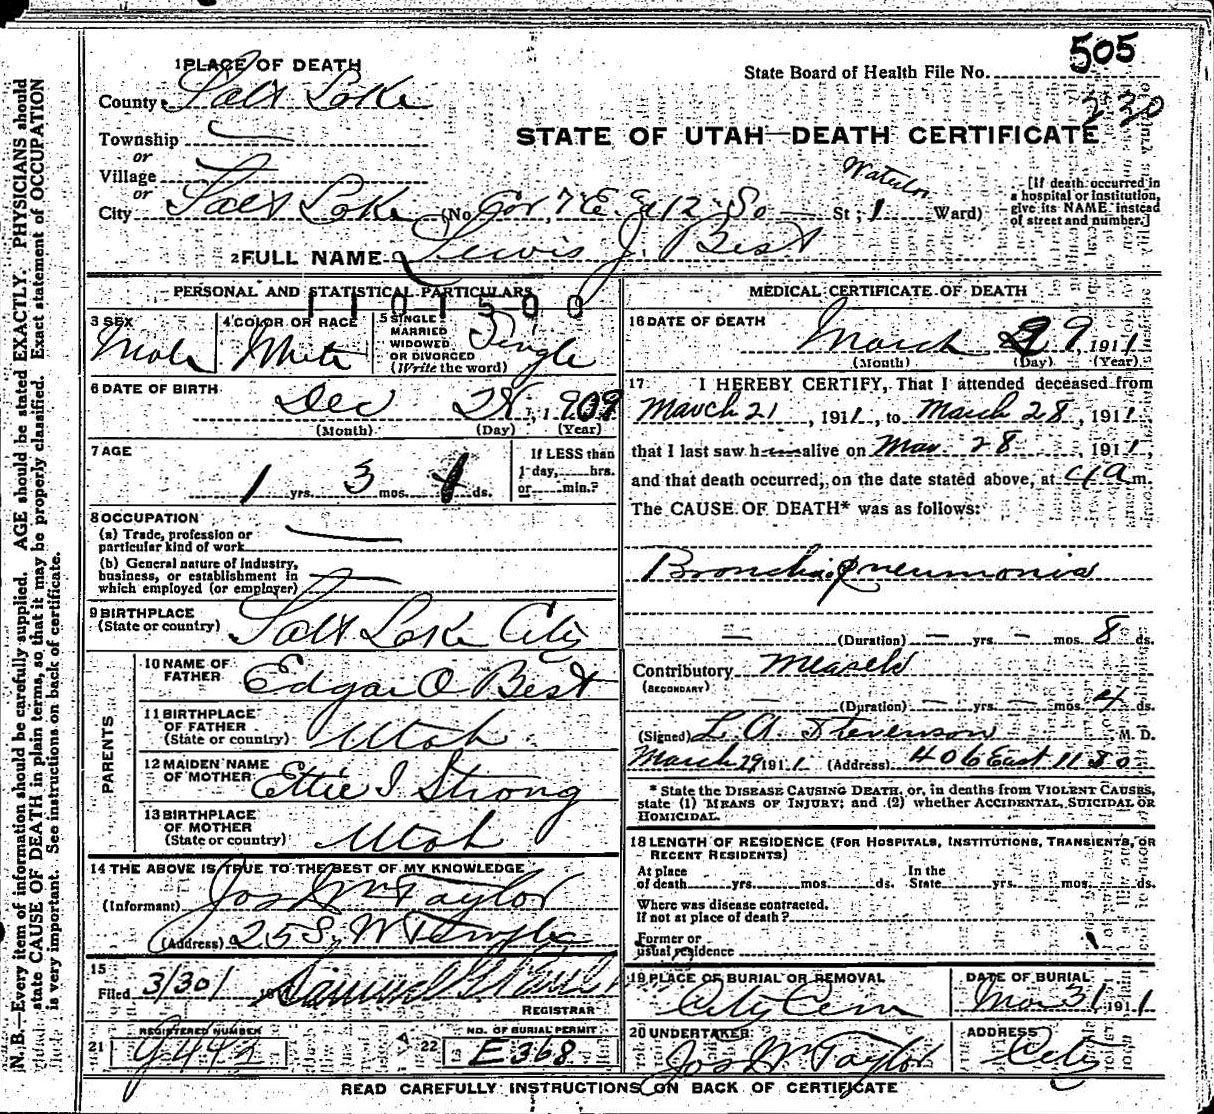 505
1 PLACE OF DEATH
State Board of Health File No.
230
County Salt Lake
Township
STATE OF UTAH—DEATH CERTIFICATE
or
Village
or
City Salt Lake (No Cor 7 E. & 12 So St; 1 Ward)
Waterloo
[If death occurred in a hospital or institution, give its NAME instead of street and number.]
2 FULL NAME Lewis J. Best
PERSONAL AND STATISTICAL PARTICULARS
1101500
3 SEX Male
4 COLOR OR RACE White
5 SINGLE MARRIED WIDOWED OR DIVORCED (Write the word) Single
6 DATE OF BIRTH Dec 28, 1909
(Month) (Day) (Year)
7 AGE
1 yrs. 3 mos. 1 ds.
If LESS than 1 day, hrs. or min.?
8 OCCUPATION
(a) Trade, profession or particular kind of work
(b) General nature of industry, business, or establishment in which employed (or employer)
9 BIRTHPLACE (State or country) Salt Lake City
PARENTS
10 NAME OF FATHER Edgar O Best
11 BIRTHPLACE OF FATHER (State or country) Utah
12 MAIDEN NAME OF MOTHER Ettie I Strong
13 BIRTHPLACE OF MOTHER (State or country) Utah
14 THE ABOVE IS TRUE TO THE BEST OF MY KNOWLEDGE
(Informant) Jos Wm Taylor
(Address) 25 S. W Temple
15
Filed 3/30/ 19
REGISTRAR
21 REGISTERED NUMBER
22 NO. OF BURIAL PERMIT E368
MEDICAL CERTIFICATE OF DEATH
16 DATE OF DEATH
March 29, 1911
(Month) (Day) (Year)
17 I HEREBY CERTIFY, That I attended deceased from
March 21, 1911, to March 28, 1911,
that I last saw h alive on Mar 28, 1911,
and that death occurred, on the date stated above, at 4 a m.
The CAUSE OF DEATH* was as follows:
Broncho pneumonia
(Duration) — yrs. — mos. 8 ds.
Contributory Measels
(SECONDARY)
(Duration) — yrs. — mos. 4 ds.
(Signed) L. A. Stevenson M. D.
March 29 1911 (Address) 406 East 11 So
* State the DISEASE CAUSING DEATH, or, in deaths from VIOLENT CAUSES,
state (1) MEANS OF INJURY; and (2) whether ACCIDENTAL, SUICIDAL OR
HOMICIDAL.
18 LENGTH OF RESIDENCE (FOR HOSPITALS, INSTITUTIONS, TRANSIENTS, OR
RECENT RESIDENTS)
At place of death yrs. mos. ds. In the State yrs. mos. ds.
Where was disease contracted,
If not at place of death?
Former or
usual residence
19 PLACE OF BURIAL OR REMOVAL City Cem
DATE OF BURIAL Mar 31 1911
20 UNDERTAKER Jos Wm Taylor
ADDRESS City
READ CAREFULLY INSTRUCTIONS ON BACK OF CERTIFICATE
N. B.—Every item of information should be carefully supplied. AGE should be stated EXACTLY. PHYSICIANS should
state CAUSE OF DEATH in plain terms, so that it may be properly classified. Exact statement of OCCUPATION
is very important. See instructions on back of certificate.